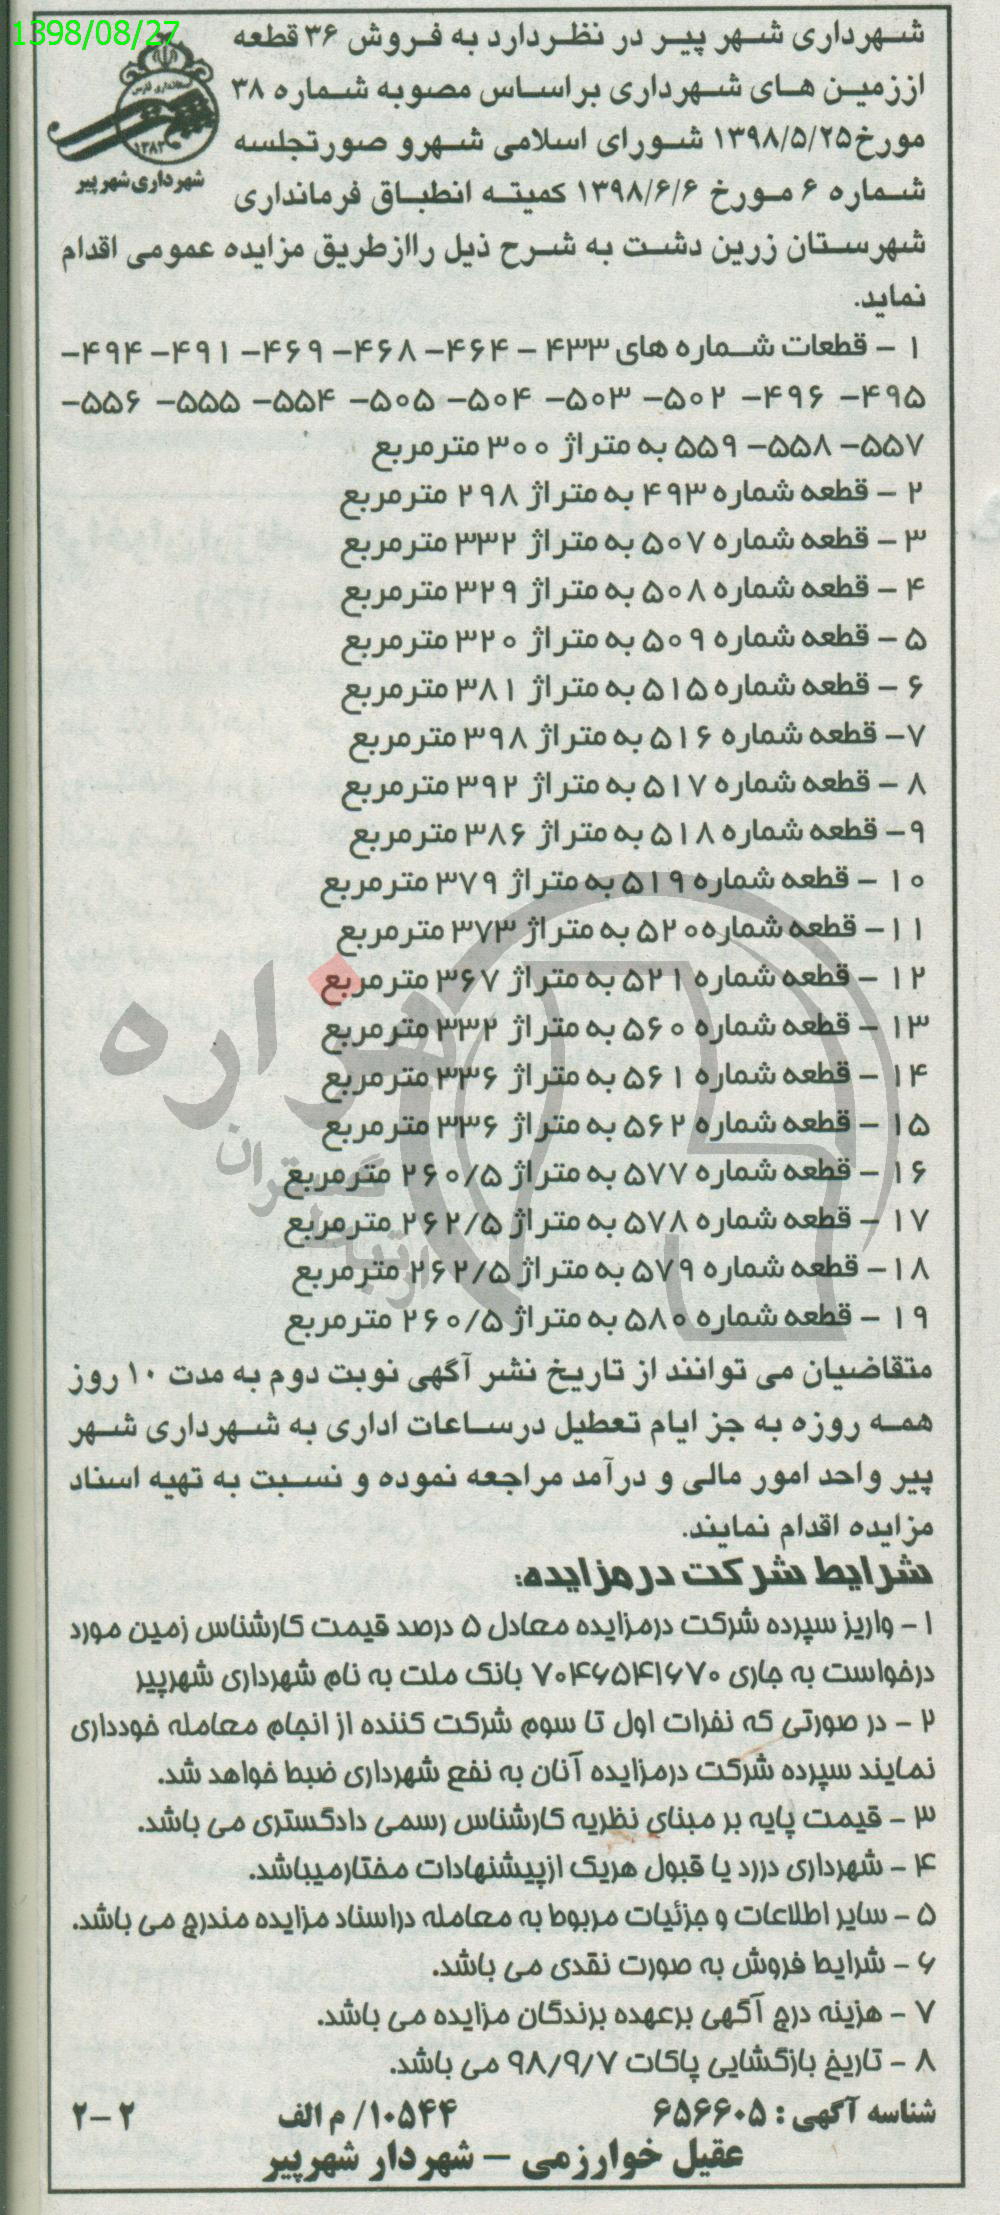 1398/08/27
شهرداری شهر پیر در نظردارد به فروش ۳۶ قطعه
اززمین های شهرداری براساس مصوبه شماره ۳۸
مورخ۱۳۹۸/۵/۲۵ شورای اسلامی شهرو صورتجلسه
شماره ۶ مورخ ۱۳۹۸/۶/۶ کمیته انطباق فرمانداری
استانداری فارس
۱۳۸۲
شهرداری شهرپیر
شهرستان زرین دشت به شرح ذیل راازطریق مزایده عمومی اقدام
نماید.
۱ – قطعات شماره های ۴۳۳ – ۴۶۴– ۴۶۸– ۴۶۹– ۴۹۱– ۴۹۴–
۴۹۵– ۴۹۶ –۵۰۲ –۵۰۳ –۵۰۴ –۵۰۵ –۵۵۴ –۵۵۵ –۵۵۶–
۵۵۷– ۵۵۸– ۵۵۹ به متراژ ۳۰۰ مترمربع
۲ – قطعه شماره ۴۹۳ به متراژ ۲۹۸ مترمربع
۳ – قطعه شماره ۵۰۷ به متراژ ۳۳۲ مترمربع
۴ – قطعه شماره ۵۰۸ به متراژ ۳۲۹ مترمربع
۵ – قطعه شماره ۵۰۹ به متراژ ۳۲۰ مترمربع
۶ – قطعه شماره ۵۱۵ به متراژ ۳۸۱ مترمربع
۷– قطعه شماره ۵۱۶ به متراژ ۳۹۸ مترمربع
۸ – قطعه شماره ۵۱۷ به متراژ ۳۹۲ مترمربع
۹– قطعه شماره ۵۱۸ به متراژ ۳۸۶ مترمربع
۱۰ – قطعه شماره ۵۱۹ به متراژ ۳۷۹ مترمربع
۱۱– قطعه شماره۵۲۰ به متراژ ۳۷۳ مترمربع
۱۲ – قطعه شماره ۵۲۱ به متراژ ۳۶۷ مترمربع
۱۳ – قطعه شماره ۵۶۰ به متراژ ۳۳۲ مترمربع
۱۴ – قطعه شماره ۵۶۱ به متراژ ۳۳۶ مترمربع
۱۵ – قطعه شماره ۵۶۲ به متراژ ۳۳۶ مترمربع
۱۶ – قطعه شماره ۵۷۷ به متراژ ۲۶۰/۵ مترمربع
۱۷ – قطعه شماره ۵۷۸ به متراژ ۲۶۲/۵ مترمربع
۱۸– قطعه شماره ۵۷۹ به متراژ ۲۶۲/۵ مترمربع
۱۹ – قطعه شماره ۵۸۰ به متراژ ۲۶۰/۵ مترمربع
متقاضیان می توانند از تاریخ نشر آگهی نوبت دوم به مدت ۱۰ روز
همه روزه به جز ایام تعطیل درساعات اداری به شهرداری شهر
پیر واحد امور مالی و درآمد مراجعه نموده و نسبت به تهیه اسناد
مزایده اقدام نمایند.
شرایط شرکت درمزایده:
۱ – واریز سپرده شرکت درمزایده معادل ۵ درصد قیمت کارشناس زمین مورد
درخواست به جاری ۷۰۴۶۵۴۱۶۷۰ بانک ملت به نام شهرداری شهرپیر
۲ – در صورتی که نفرات اول تا سوم شرکت کننده از انجام معامله خودداری
نمایند سپرده شرکت درمزایده آنان به نفع شهرداری ضبط خواهد شد.
۳ – قیمت پایه بر مبنای نظریه کارشناس رسمی دادگستری می باشد.
۴ – شهرداری دررد یا قبول هریک ازپیشنهادات مختارمیباشد.
۵ – سایر اطلاعات و جزئیات مربوط به معامله دراسناد مزایده مندرج می باشد.
۶ – شرایط فروش به صورت نقدی می باشد.
۷ – هزینه درج آگهی برعهده برندگان مزایده می باشد.
۸ – تاریخ بازگشایی پاکات ۹۸/۹/۷ می باشد.
شناسه آگهی : ۶۵۶۶۰۵ ۱۰۵۴۴/ م الف ۲ –۲
عقیل خوارزمی – شهردار شهرپیر
هزاره
ارتباط گستران